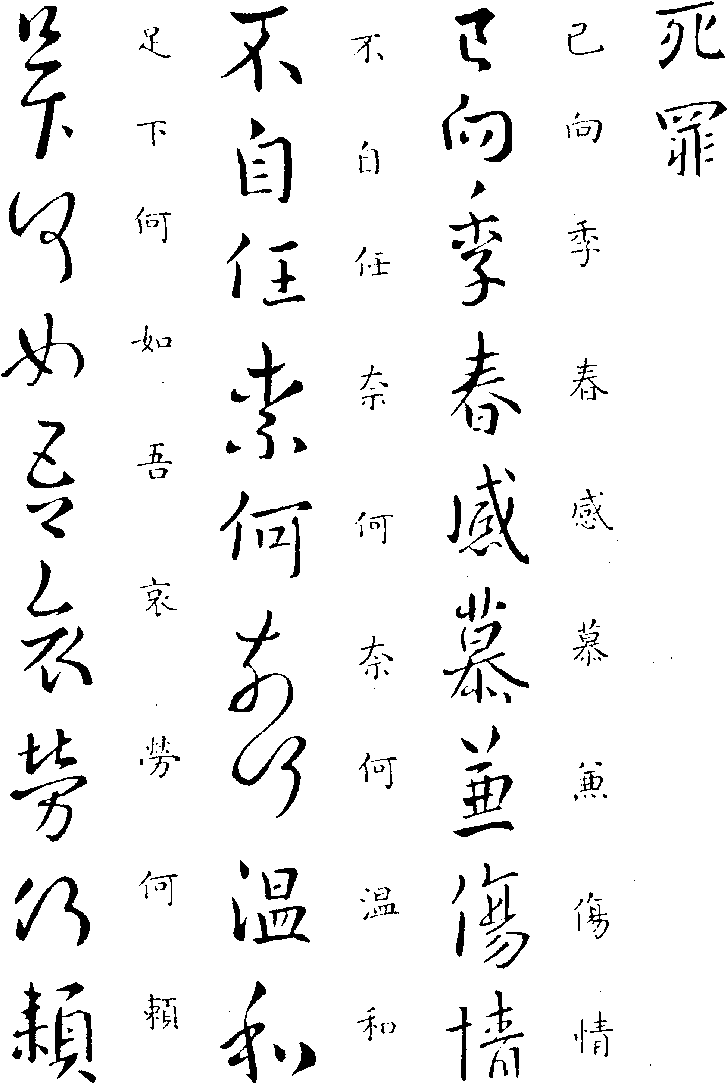 死罪
已向季春感慕兼傷情
已向季春感慕兼傷情
不自任奈何奈何温和
不自任柰何奈何温和
足下何如吾哀勞何頼
足下何如吾哀勞何頼